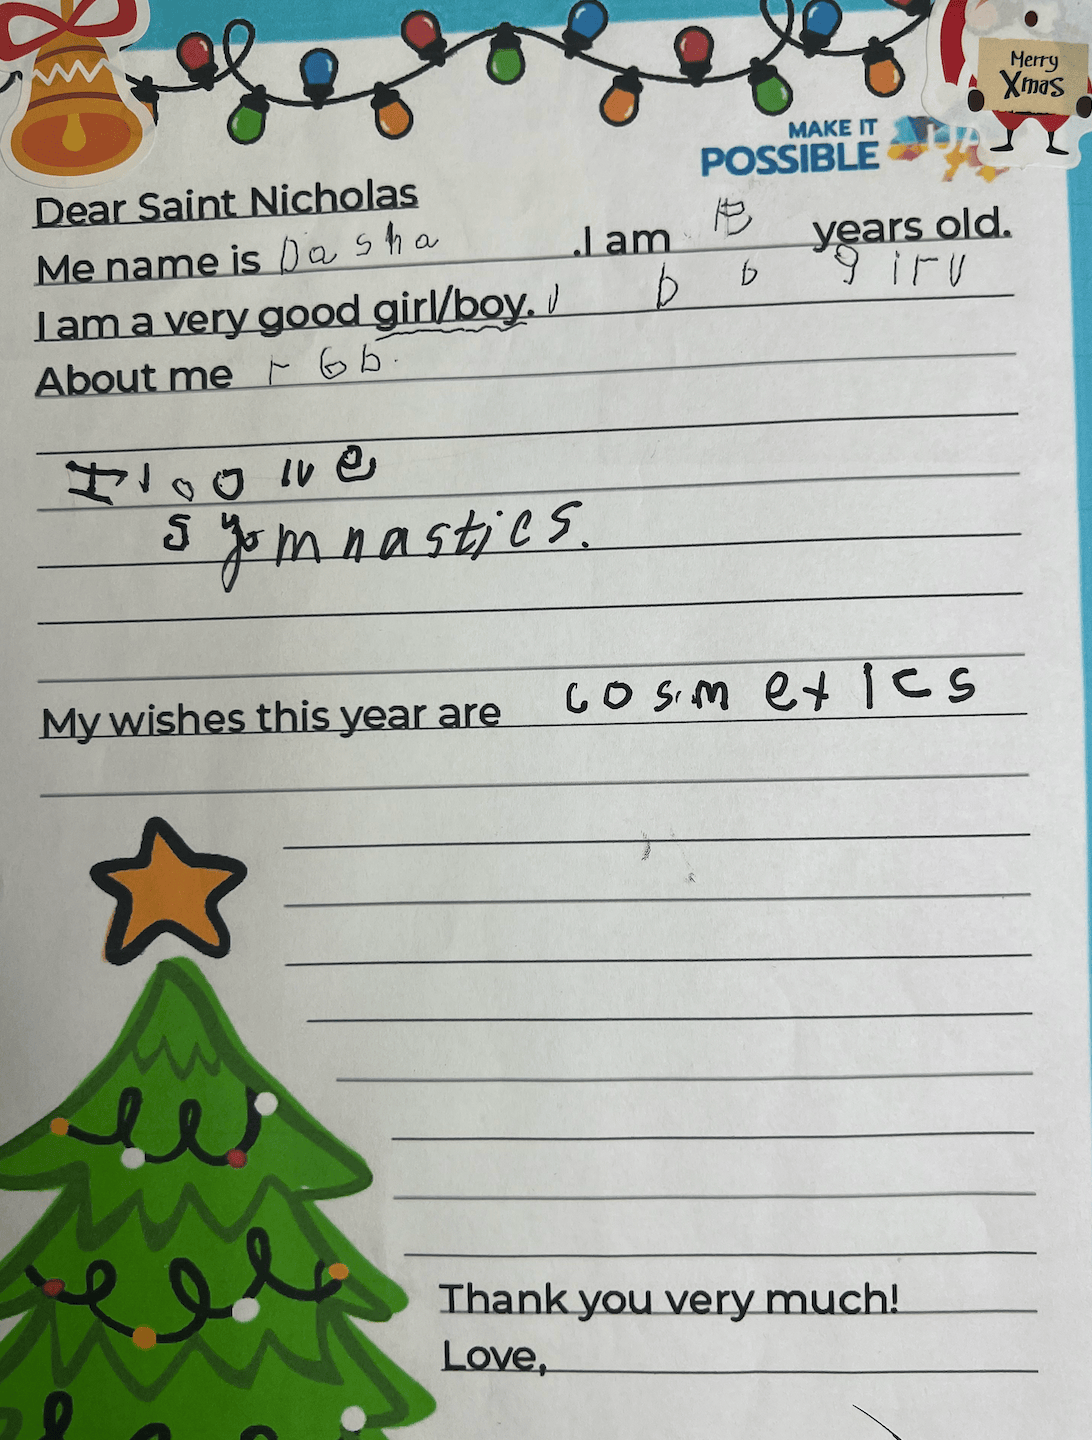 Merry
Xmas
MAKE IT
POSSIBLE
Dear Saint Nicholas
Me name is Dasha .I am years old.
I am a very good girl/boy. girl
About me
I loove
gymnastics.
My wishes this year are cosmetics
Thank you very much!
Love,